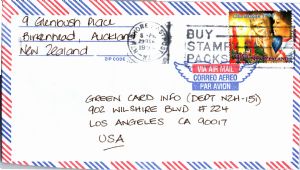 9 Glenbush Place
Birkenhead, Auckland
New Zealand
ZIP CODE
BUY
STAMP
PACKS
VIA AIR MAIL
CORREO AEREO
PAR AVION
GREEN CARD INFO (DEPT NZH-151)
902 WILSHIRE BLVD # 224
LOS ANGELES CA 90017
USA